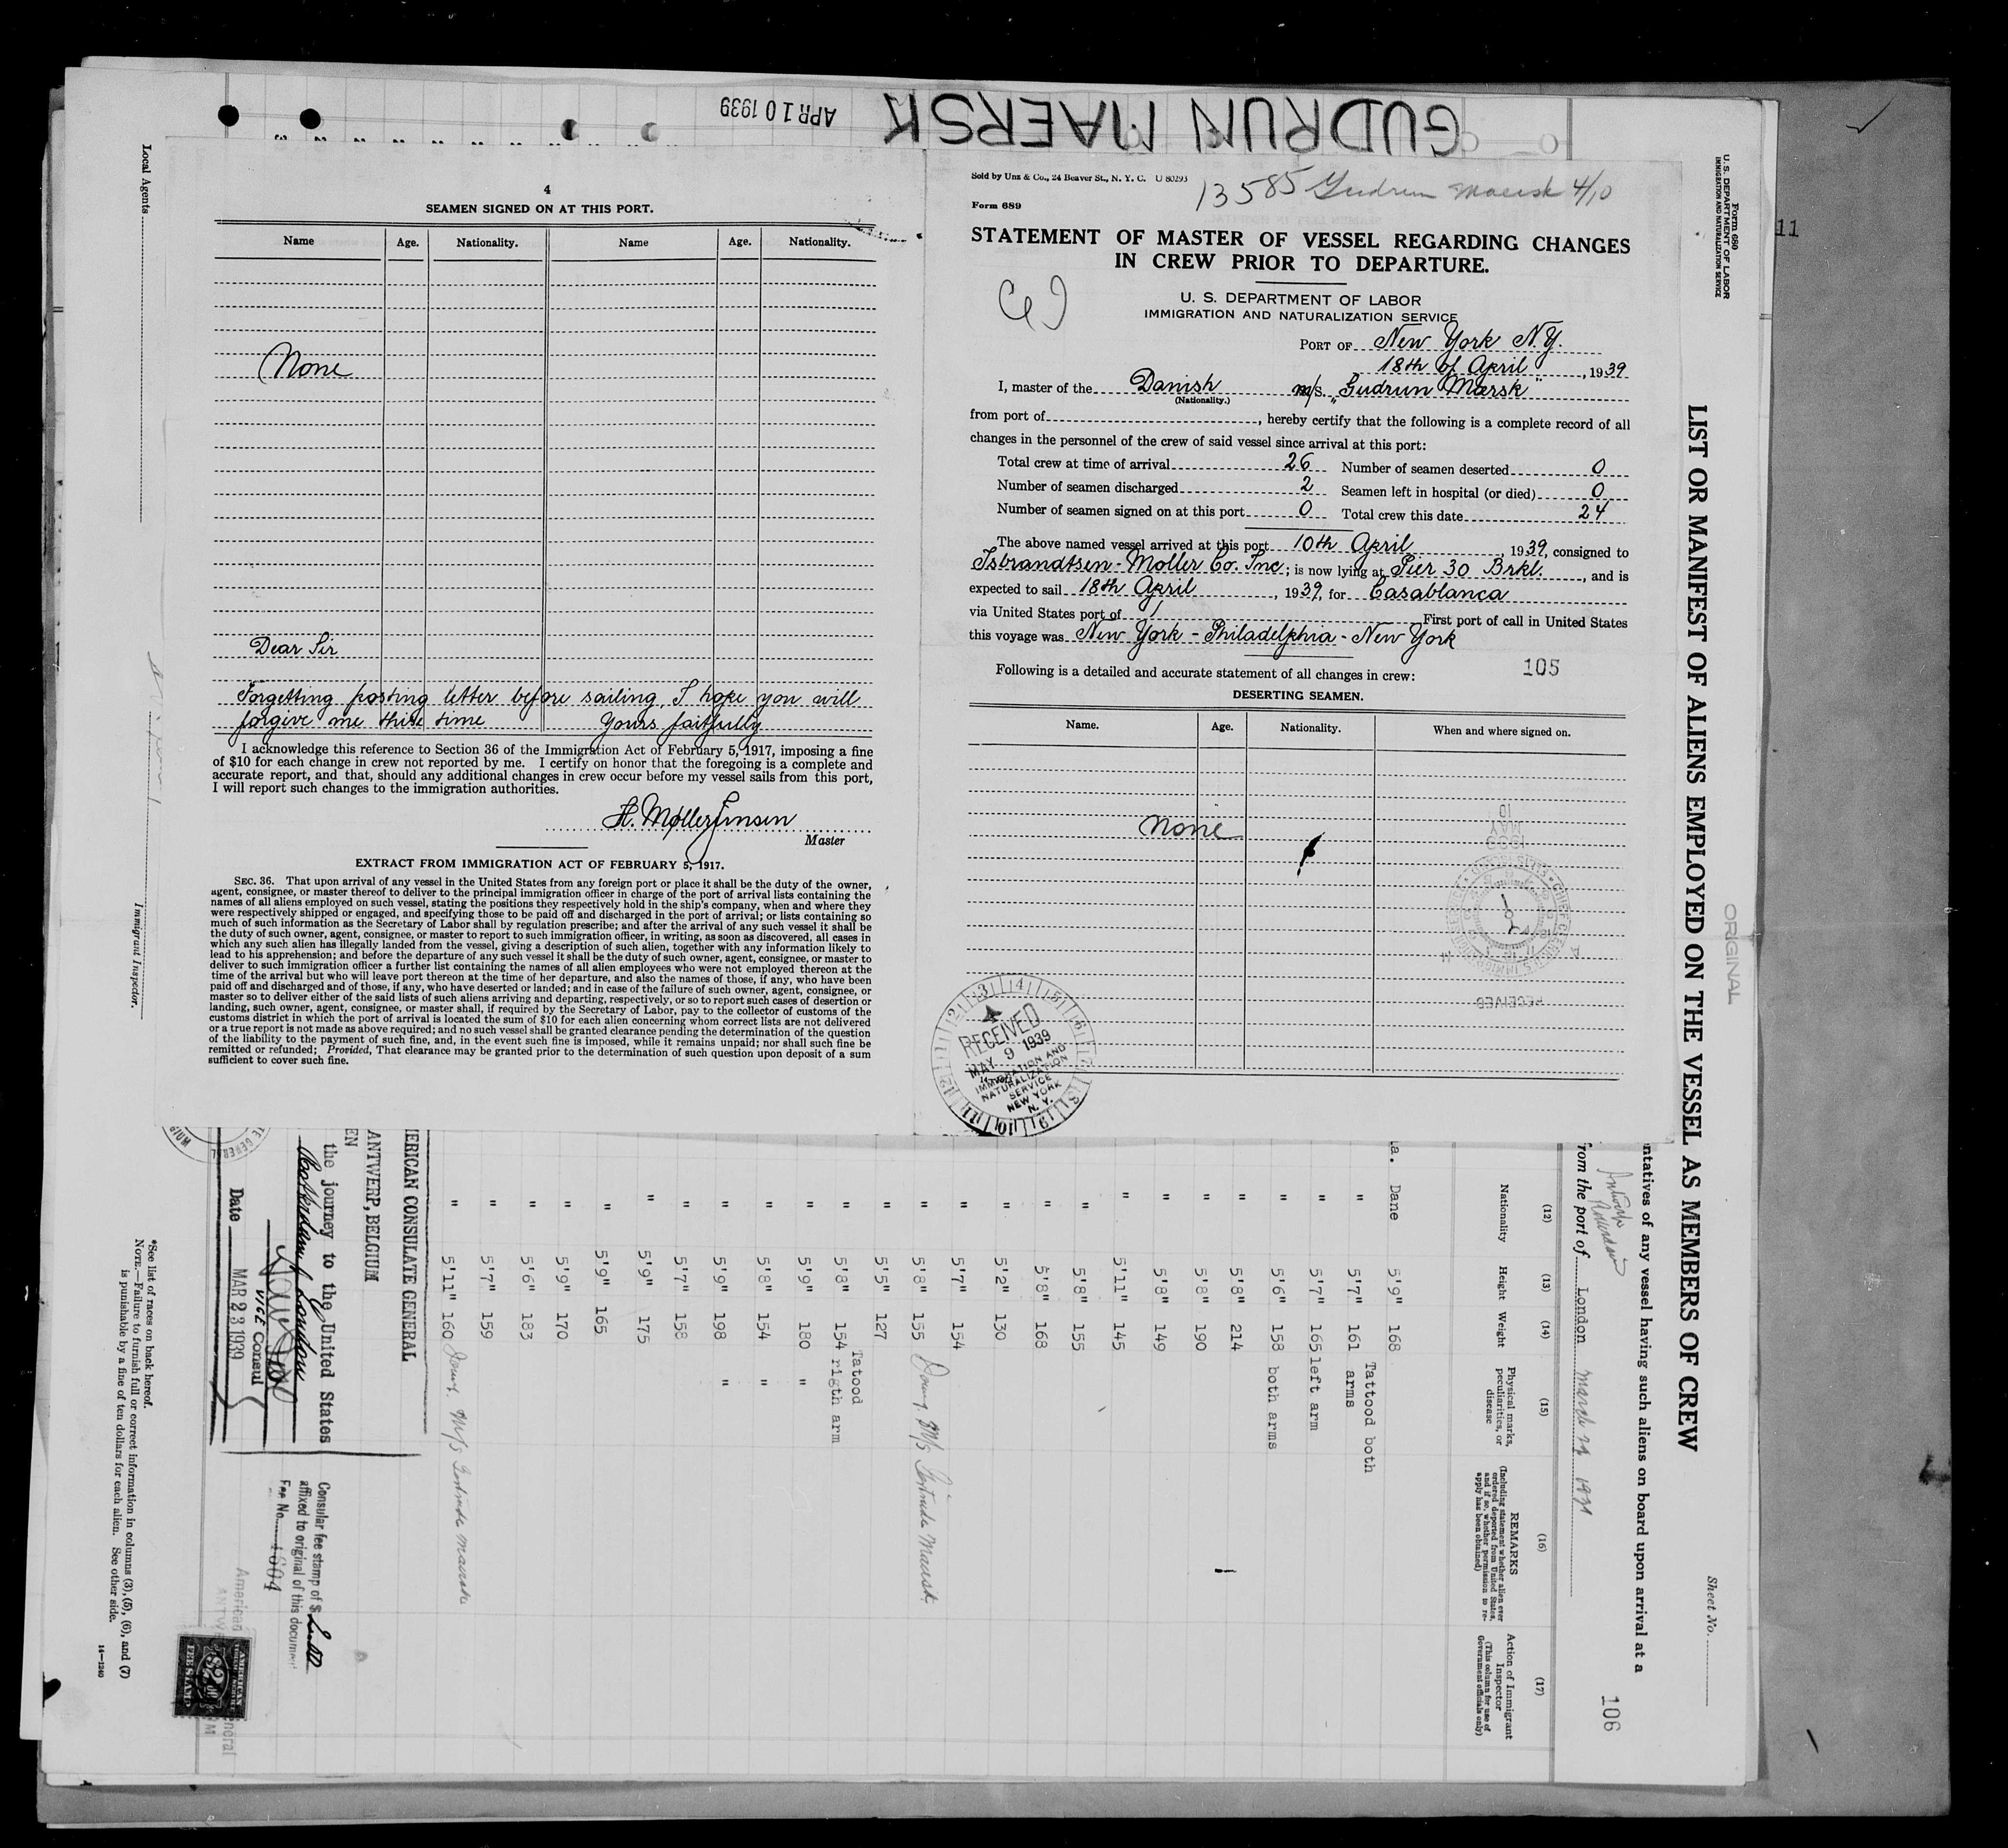 GUDRUN MAERSK
APR 10 1939
4
SEAMEN SIGNED ON AT THIS PORT.
Name Age. Nationality. Name Age. Nationality.
None
Dear Sir
Forgetting posting letter before sailing, I hope you will
forgive me this time Yours faithfully
I acknowledge this reference to Section 36 of the Immigration Act of February 5, 1917, imposing a fine
of $10 for each change in crew not reported by me. I certify on honor that the foregoing is a complete and
accurate report, and that, should any additional changes in crew occur before my vessel sails from this port,
I will report such changes to the immigration authorities.
H. Møller Jensen
Master
EXTRACT FROM IMMIGRATION ACT OF FEBRUARY 5, 1917.
SEC. 36. That upon arrival of any vessel in the United States from any foreign port or place it shall be the duty of the owner,
agent, consignee, or master thereof to deliver to the principal immigration officer in charge of the port of arrival lists containing the
names of all aliens employed on such vessel, stating the positions they respectively hold in the ship's company, when and where they
were respectively shipped or engaged, and specifying those to be paid off and discharged in the port of arrival; or lists containing so
much of such information as the Secretary of Labor shall by regulation prescribe; and after the arrival of any such vessel it shall be
the duty of such owner, agent, consignee, or master to report to such immigration officer, in writing, as soon as discovered, all cases in
which any such alien has illegally landed from the vessel, giving a description of such alien, together with any information likely to
lead to his apprehension; and before the departure of any such vessel it shall be the duty of such owner, agent, consignee, or master to
deliver to such immigration officer a further list containing the names of all alien employees who were not employed thereon at the
time of the arrival but who will leave port thereon at the time of her departure, and also the names of those, if any, who have been
paid off and discharged and of those, if any, who have deserted or landed; and in case of the failure of such owner, agent, consignee, or
master so to deliver either of the said lists of such aliens arriving and departing, respectively, or so to report such cases of desertion or
landing, such owner, agent, consignee, or master shall, if required by the Secretary of Labor, pay to the collector of customs of the
customs district in which the port of arrival is located the sum of $10 for each alien concerning whom correct lists are not delivered
or a true report is not made as above required; and no such vessel shall be granted clearance pending the determination of the question
of the liability to the payment of such fine, and, in the event such fine is imposed, while it remains unpaid; nor shall such fine be
remitted or refunded; Provided, That clearance may be granted prior to the determination of such question upon deposit of a sum
sufficient to cover such fine.
Sold by Unz & Co., 24 Beaver St., N. Y. C. U 80293
13585 Gudrun Maersk 4/10
Form 689
STATEMENT OF MASTER OF VESSEL REGARDING CHANGES
IN CREW PRIOR TO DEPARTURE.
U. S. DEPARTMENT OF LABOR
IMMIGRATION AND NATURALIZATION SERVICE
PORT OF New York N.Y.
18th of April, 1939
I, master of the Danish m/s. "Gudrun Mærsk"
(Nationality.)
from port of , hereby certify that the following is a complete record of all
changes in the personnel of the crew of said vessel since arrival at this port:
Total crew at time of arrival 26 Number of seamen deserted 0
Number of seamen discharged 2 Seamen left in hospital (or died) 0
Number of seamen signed on at this port 0 Total crew this date 24
The above named vessel arrived at this port 10th April, 1939, consigned to
Isbrandtsen-Moller Co. Inc; is now lying at Pier 30 Brkl., and is
expected to sail 18th April, 1939, for Casablanca
via United States port of / First port of call in United States
this voyage was New York - Philadelphia - New York
105
Following is a detailed and accurate statement of all changes in crew:
DESERTING SEAMEN.
Name. Age. Nationality. When and where signed on.
None
RECEIVED
MAY 9 1939
IMMIGRATION AND
NATURALIZATION
SERVICE
NEW YORK
N. Y.
11
Form 680
U. S. DEPARTMENT OF LABOR
IMMIGRATION AND NATURALIZATION SERVICE
LIST OR MANIFEST OF ALIENS EMPLOYED ON THE VESSEL AS MEMBERS OF CREW
ORIGINAL
Sheet No.
ntatives of any vessel having such aliens on board upon arrival at a
rom the port of London March 29 1939
106
(12) (13) (14) (15) (16) (17)
Nationality Height Weight Physical marks, peculiarities, or disease
REMARKS
(Including statement whether alien ever ordered deported from United States, and if so, whether permission to reapply has been obtained)
Action of Immigrant Inspector
(This column for use of Government officials only)
a. Dane 5'9" 168
" 5'7" 161 Tattood both arms
" 5'7" 165 left arm
" 5'6" 158 both arms
" 5'8" 214
" 5'8" 190
" 5'8" 149
" 5'11" 145
" 5'8" 155
" 5'8" 168
" 5'2" 130
" 5'7" 154
" 5'8" 155
" 5'5" 127
" 5'8" 154 Tatood rigth arm
" 5'9" 180 "
" 5'8" 154 "
" 5'9" 198 "
" 5'7" 158
" 5'9" 175
" 5'9" 165
" 5'9" 170
" 5'6" 183
" 5'7" 159
" 5'11" 160
ERICAN CONSULATE GENERAL
ANTWERP, BELGIUM
EN
the journey to the United States
Rotterdam London
Vice Consul
Date MAR 23 1939
Consular fee stamp of $
affixed to original of this document
Fee No. 1604
AMERICAN
$2.00
FEE STAMP
*See list of races on back hereof.
NOTE.—Failure to furnish full or correct information in columns (3), (5), (6), and (7)
is punishable by a fine of ten dollars for each alien. See other side.
14—1240
Local Agents
Immigrant Inspector.